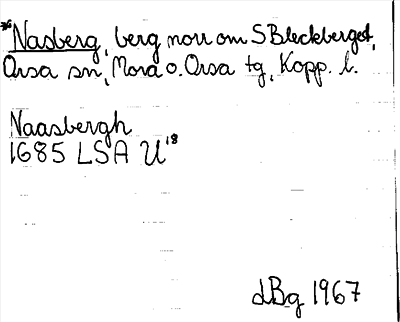 *Nasberg, berg norr om S Bleckberget,
Orsa sn, Mora o. Orsa tg, Kopp. l.
Naasbergh
1685 LSA U18
dBg 1967